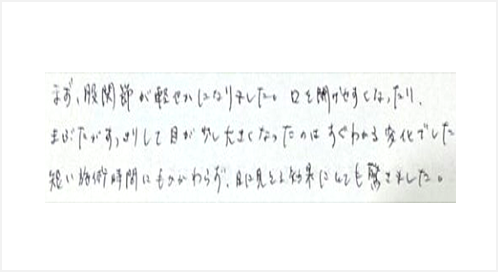 まず、股関節が軽やかになりました。口を開けやすくなったり、
まぶたがすっきりして目が少し大きくなったのはすぐわかる変化でした
短い施術時間にもかかわらず、目に見える効果にとても驚きました。